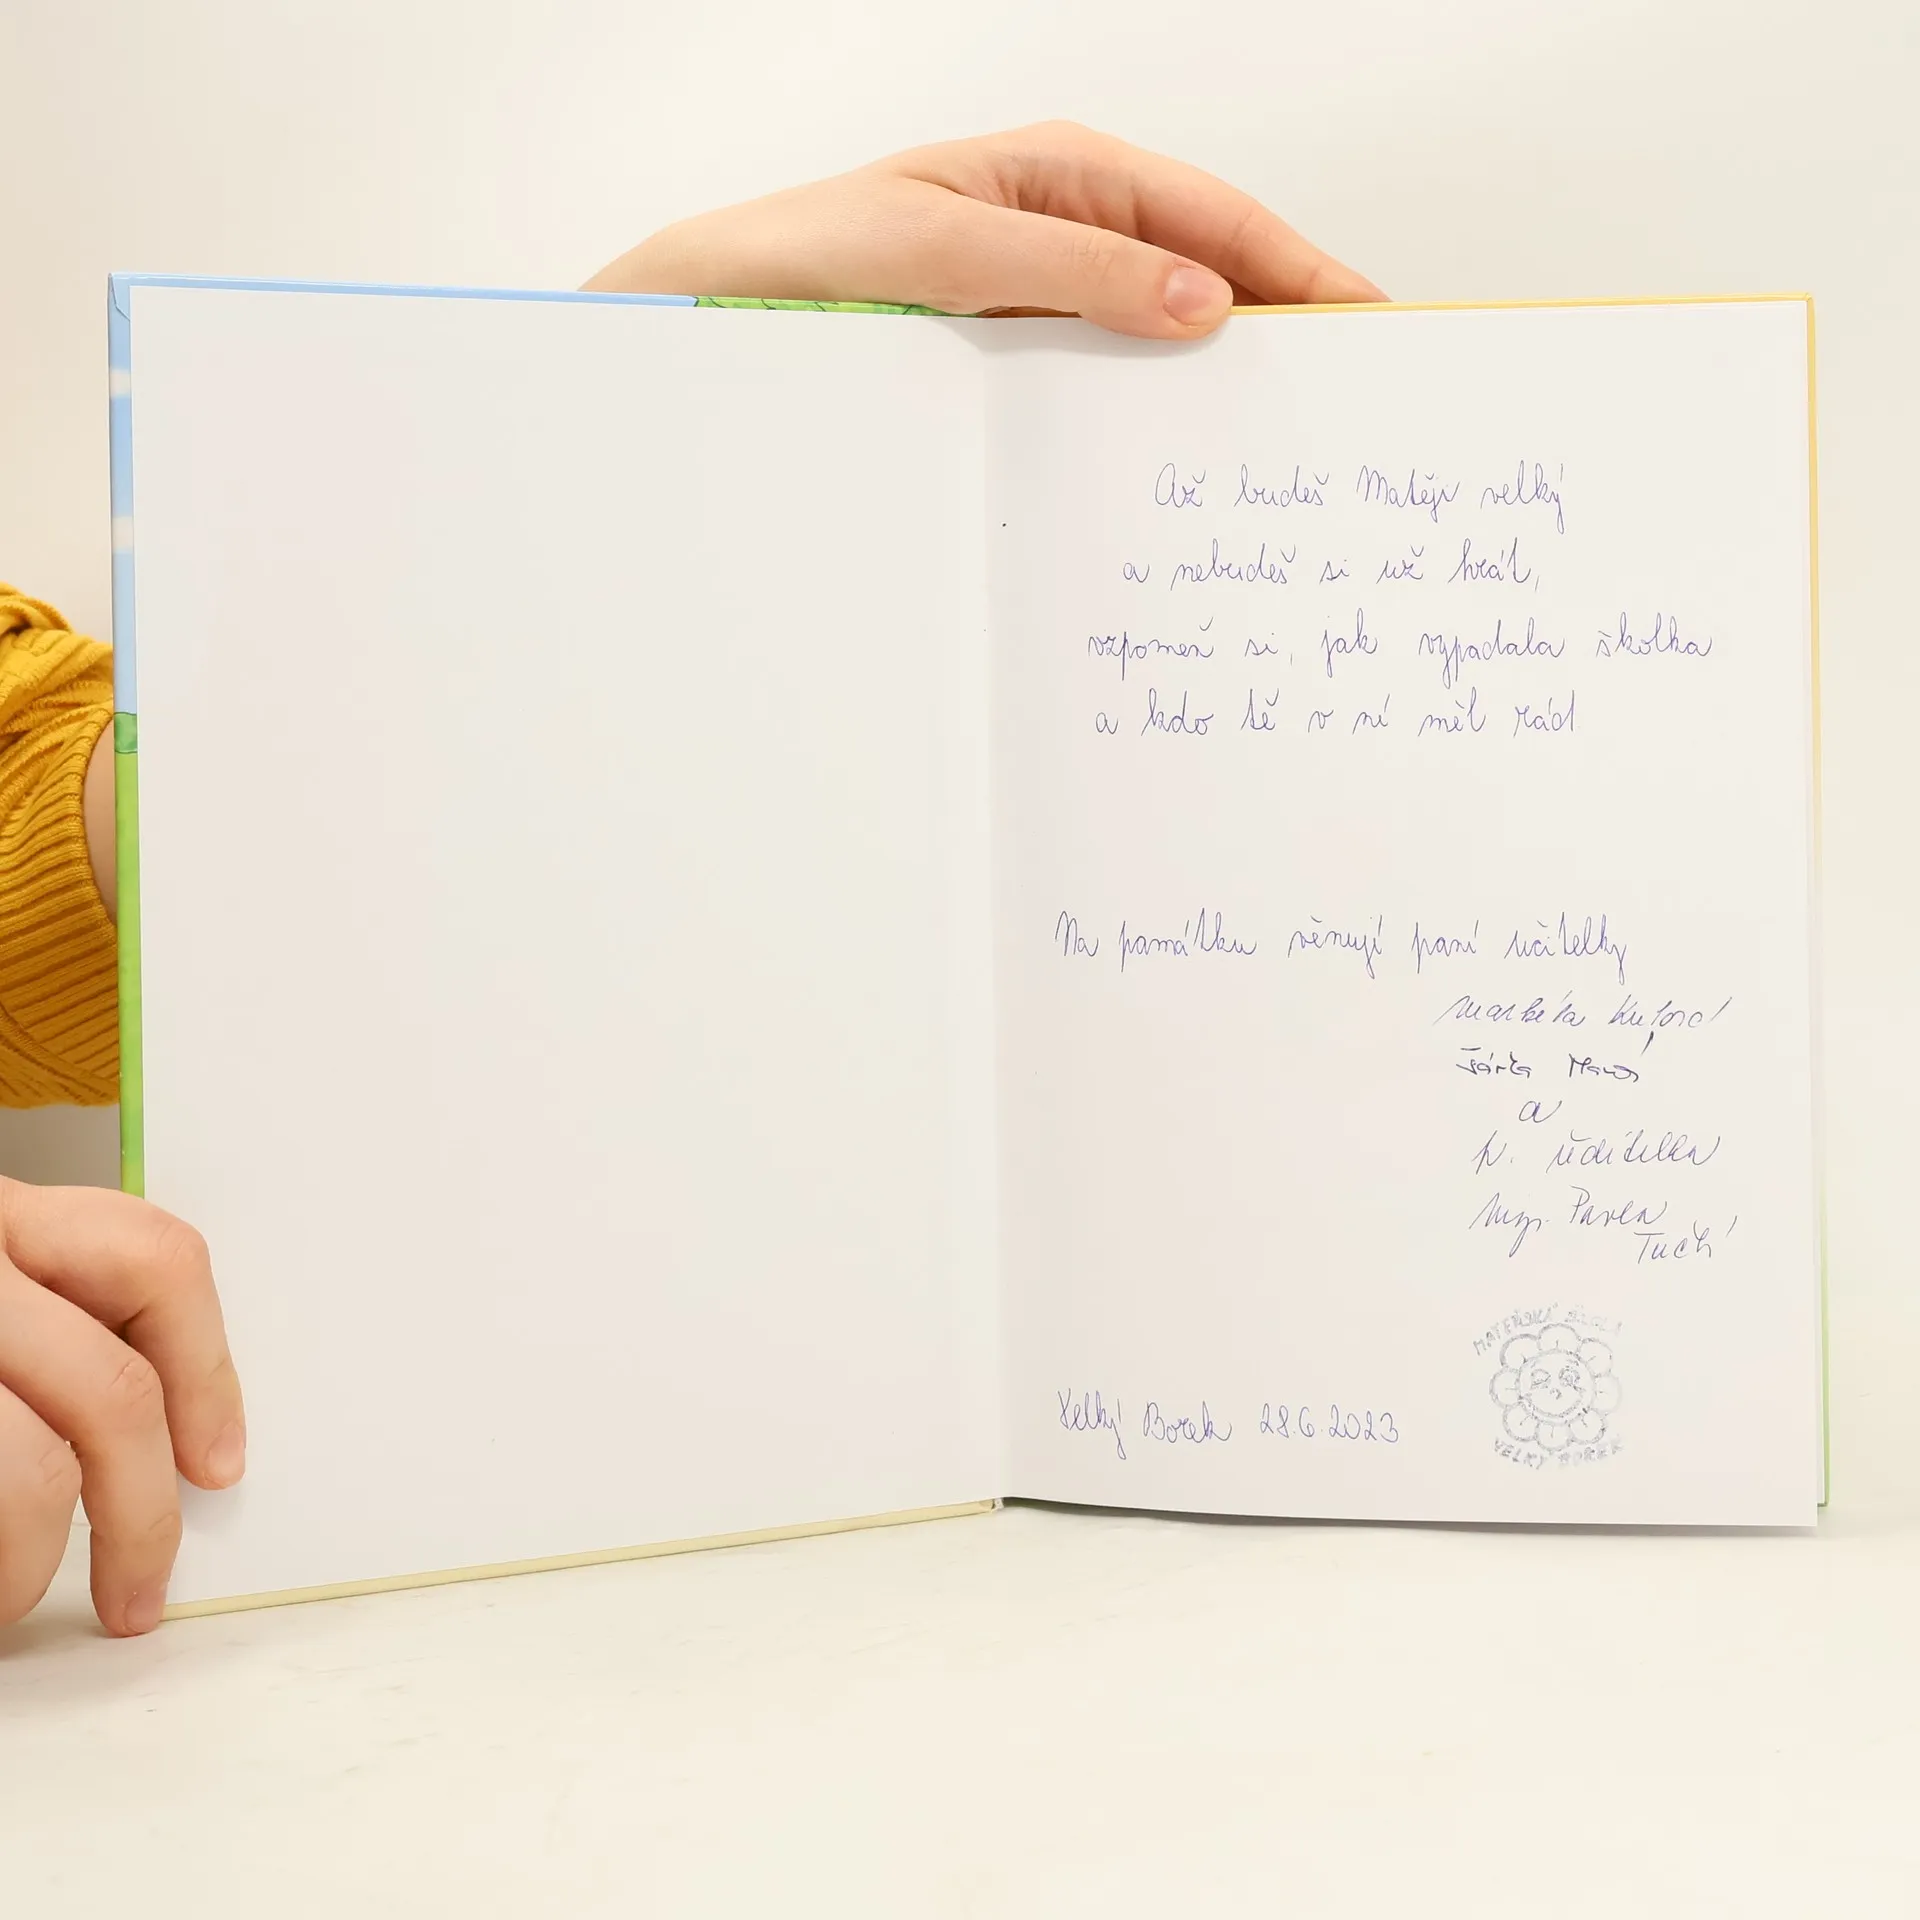 Až budeš Matěji velký
a nebudeš si už hrát,
vzpomeň si, jak vypadala školka
a kdo tě v ní měl rád
Na památku věnují paní učitelky
Markéta
Šárka
a
p. ředitelka
Mgr. Pavla
Tuchí
MATEŘSKÁ ŠKOLA
VELKÝ BOREK
Velký Borek 28.6.2023